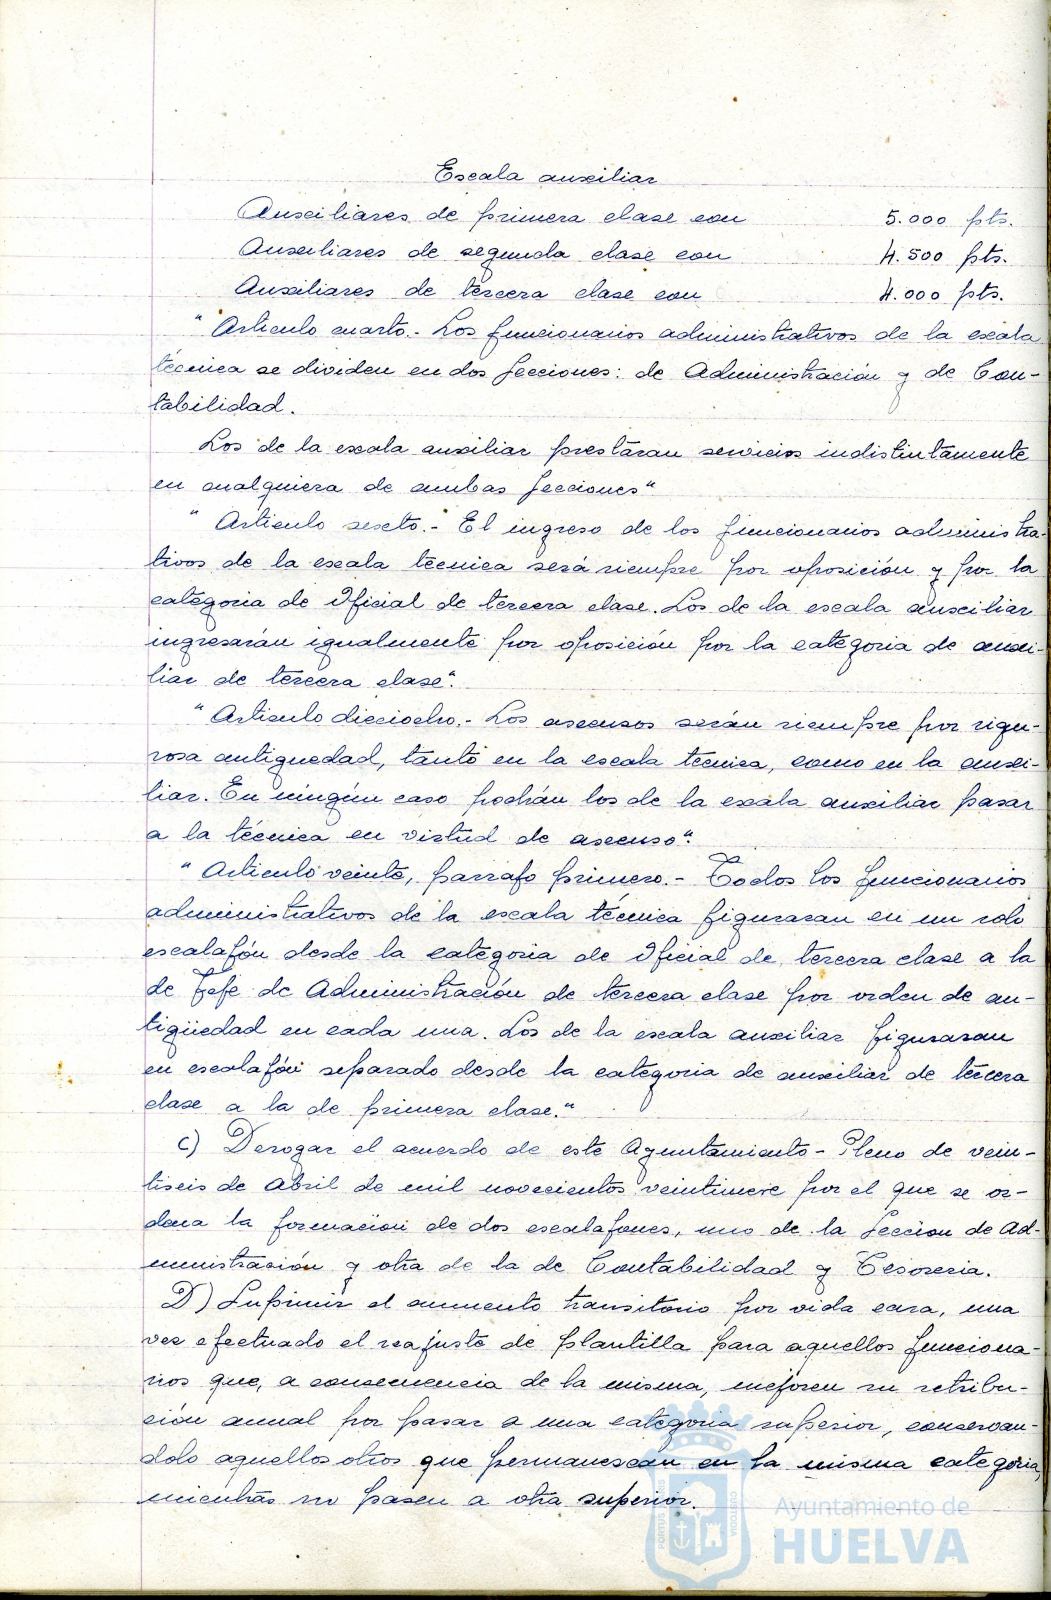 Escala auxiliar
Auxiliares de primera clase con 5.000 pts.
Auxiliares de segunda clase con 4.500 pts.
Auxiliares de tercera clase con 4.000 pts.
"Artículo cuarto.- Los funcionarios administrativos de la escala
técnica se dividen en dos Secciones: de Administración y de Con-
tabilidad.
Los de la escala auxiliar prestarán servicios indistintamente
en cualquiera de ambas Secciones"
"Artículo sexto.- El ingreso de los funcionarios administra-
tivos de la escala técnica será siempre por oposición y por la
categoría de Oficial de tercera clase. Los de la escala auxiliar
ingresarán igualmente por oposición por la categoría de auxi-
liar de tercera clase".
"Artículo dieciocho.- Los ascensos serán siempre por rigu-
rosa antiguedad, tanto en la escala técnica, como en la auxi-
liar. En ningún caso podrán los de la escala auxiliar pasar
a la técnica en virtud de ascenso".
"Artículo veinte, párrafo primero.- Todos los funcionarios
administrativos de la escala técnica figuraran en un solo
escalafón desde la categoría de Oficial de tercera clase a la
de Jefe de Administración de tercera clase por orden de an-
tigüedad en cada una. Los de la escala auxiliar figuraran
en escalafón separado desde la categoría de auxiliar de tercera
clase a la de primera clase."
C) Derogar el acuerdo de este Ayuntamiento-Pleno de vein-
tiseis de Abril de mil novecientos veintinueve por el que se or-
dena la formación de dos escalafones, uno de la Sección de Ad-
ministración y otra de la de Contabilidad y Tesorería.
D) Suprimir el aumento transitorio por vida cara, una
vez efectuado el reajuste de plantilla para aquellos funciona-
rios que, a consecuencia de la misma, mejoren su retribu-
ción anual por pasar a una categoría superior, conservan-
dolo aquellos otros que permanezcan en la misma categoría,
mientras no pasen a otra superior.
PORTUS CUSTODIA
Ayuntamiento de
HUELVA